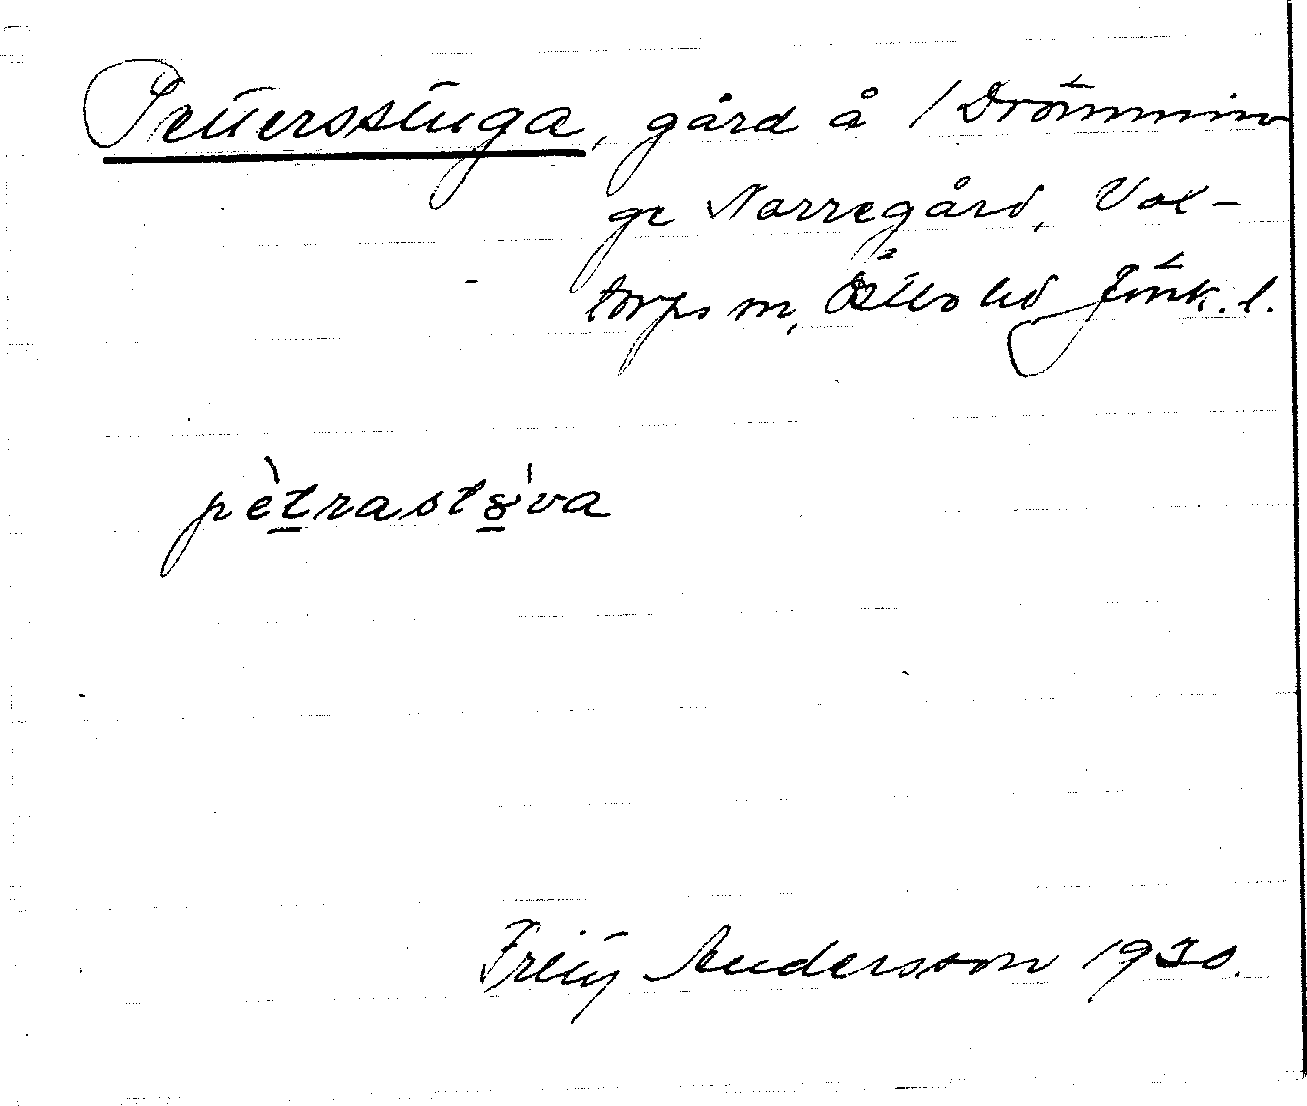 Pettersstuga, gård å 1 Drömmin
ge Norregård, Val-
torps sn, Östbo hd Jönk. l.
pètrastǿva
Fritz Andersson 1930.